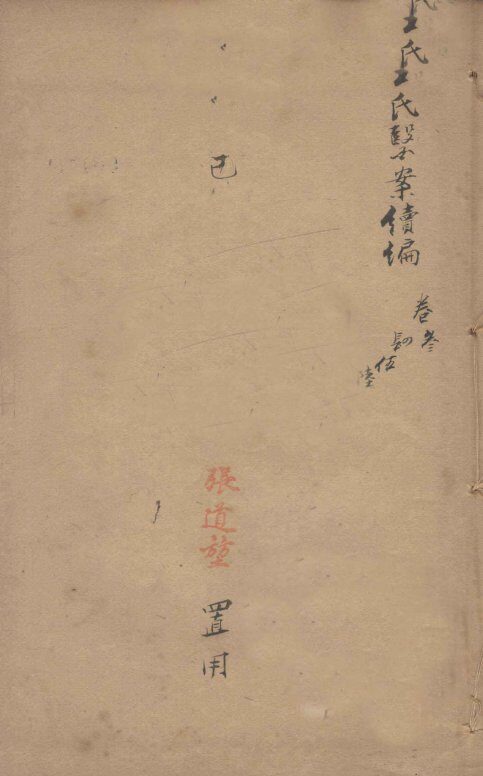 王氏王氏醫案續編
卷叁
肆
伍
陸
已
張道堃
置用